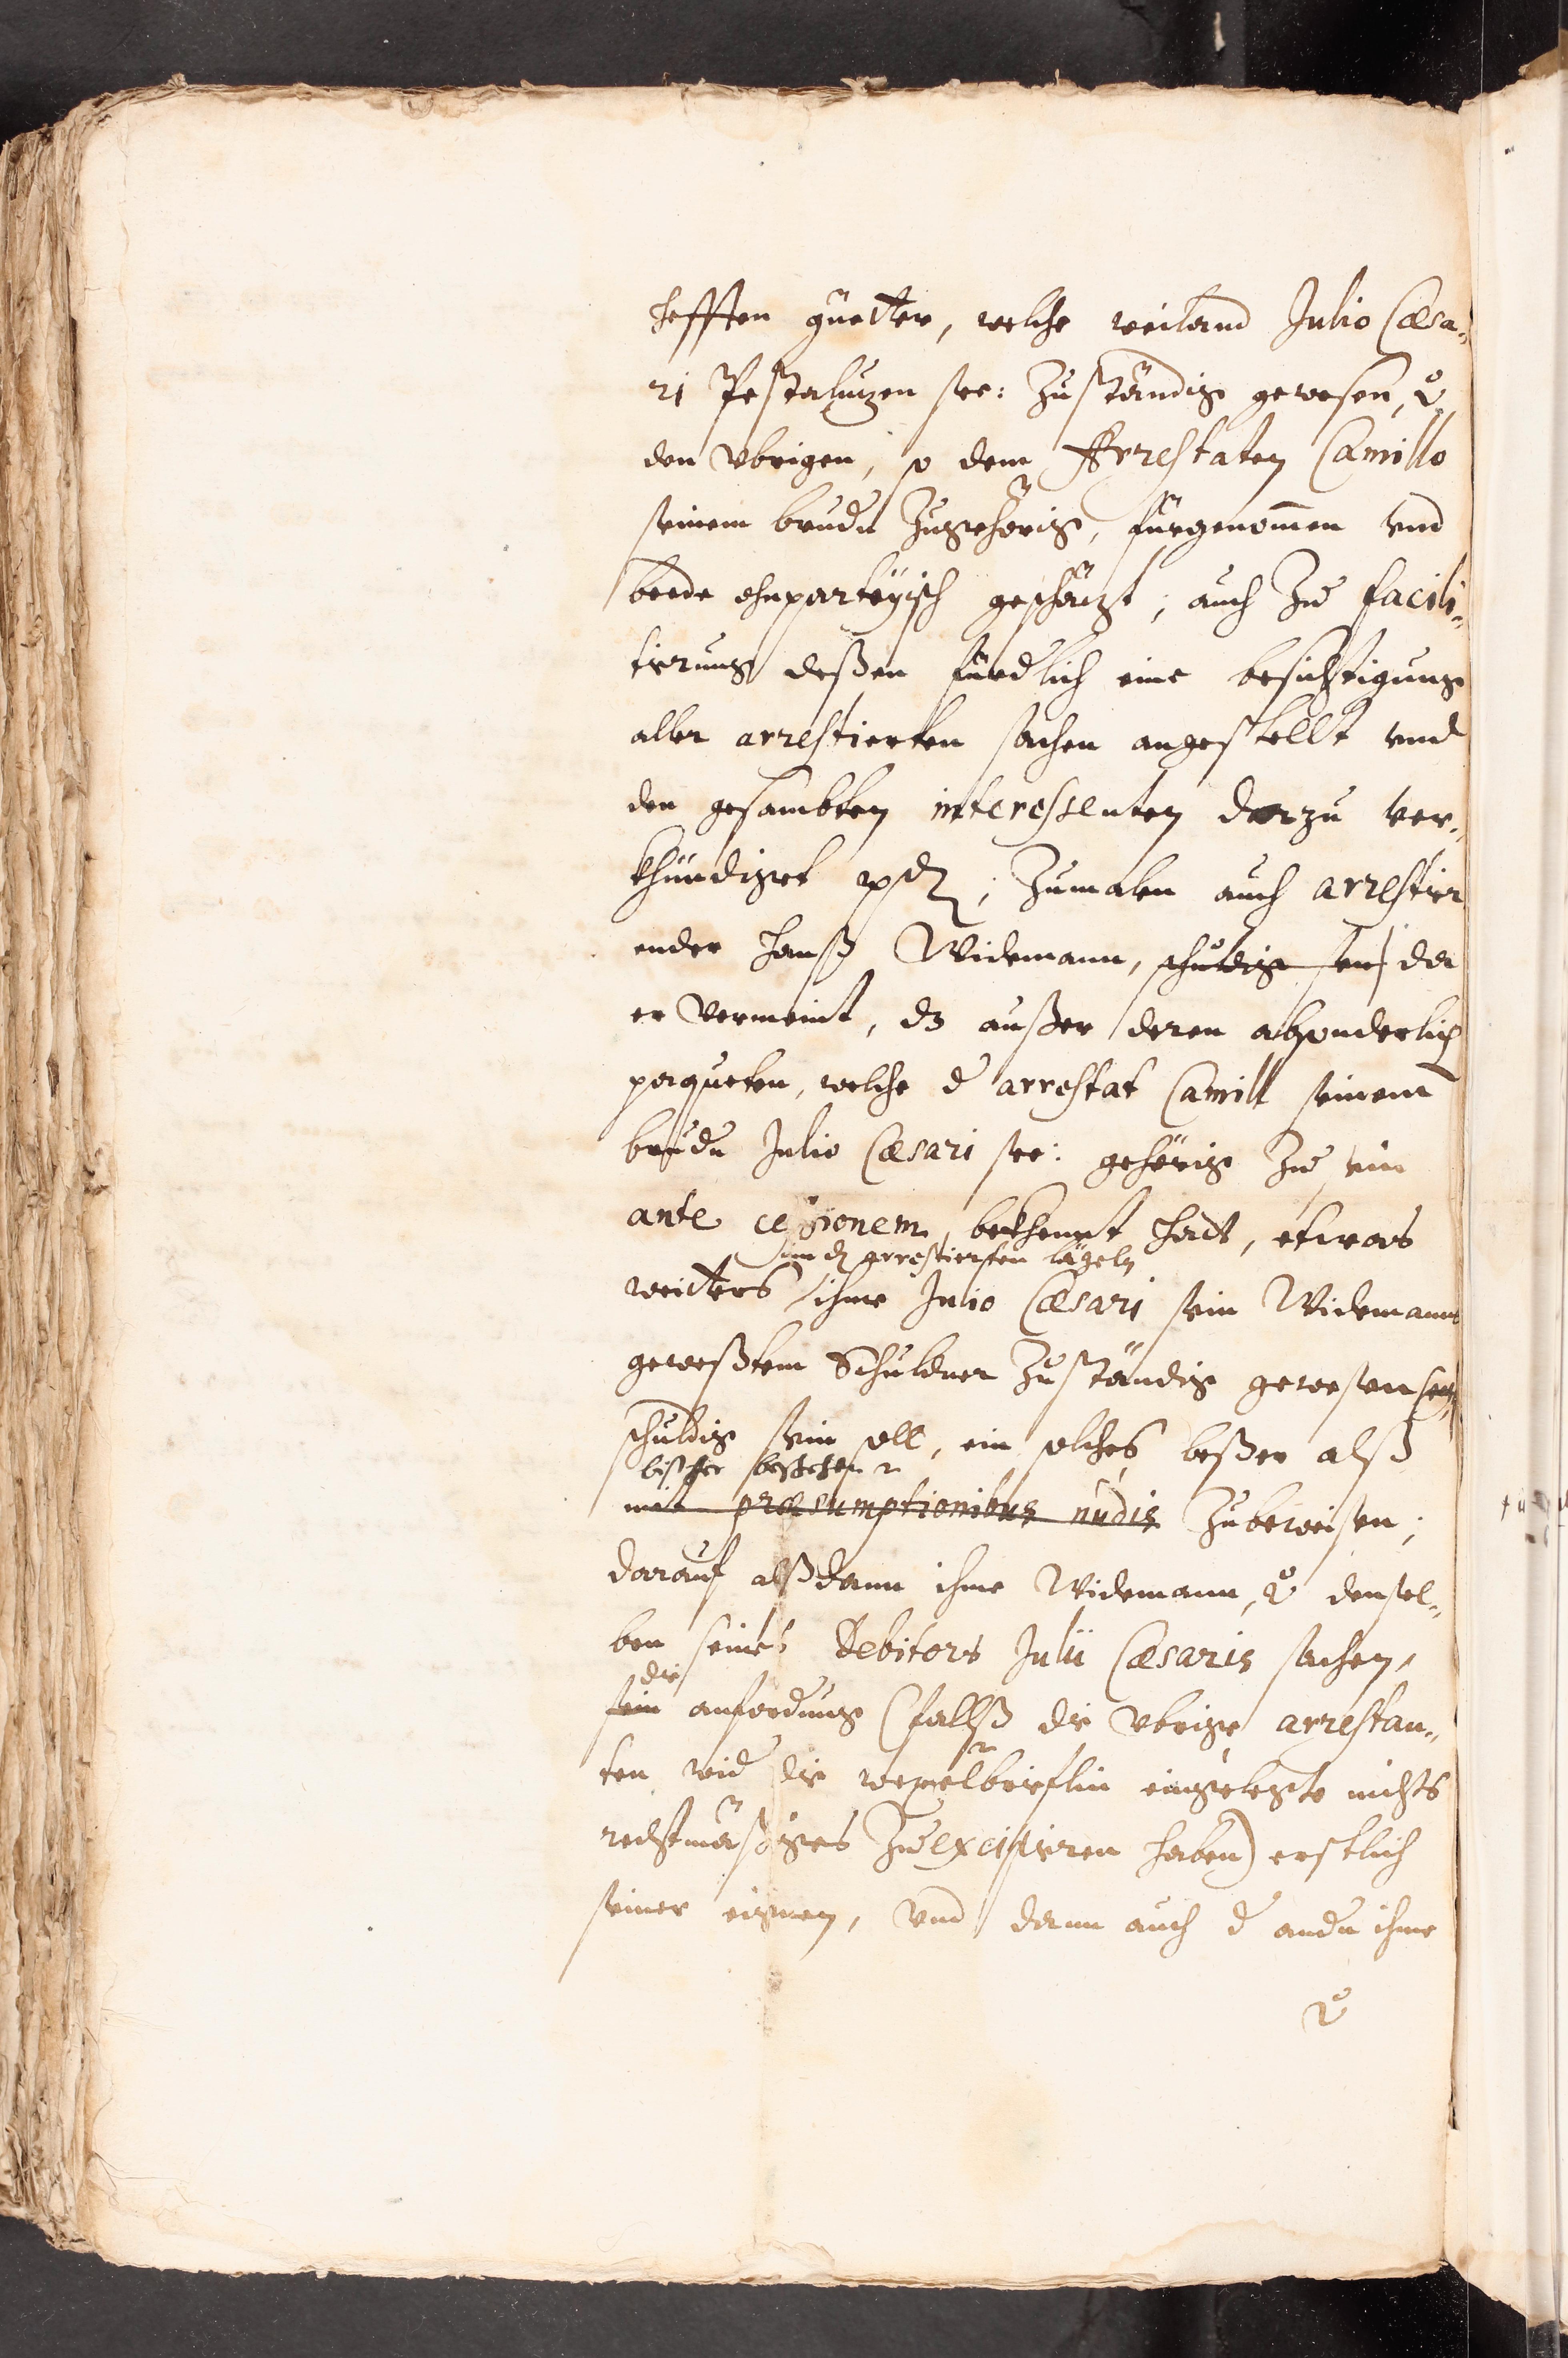 hefften güetter, welche weiland Julio Cæsa-
ri Pestaluzen see: Zuständig gewesen, v̊
den vbrigen, so dem Arrestaten Camillo
seinem brudr Zugehörig, fürgenom̄en vnd
beede ohnparteyisch geschäzt, auch Zue facili-
tirung deßen fürdlich eine besichtigung
aller arrestierten sachen angestellt vnd
den gesambten interessenten darzu ver-
khündiget ; Zumalen auch arrestir
ender Hanß Widemann, schuldig sey da
er Vermeint, dz außer deren absonderlich
paqueten, welche d arrestat Camill seinem
brudr Julio Cæsari see: gehörig Zue sein
ante cessionem, bekhennt hatt, etwas
in dz arrestierten lägeln
weitters ihme Julio Cæsari sein Widemanns
geweßtem Schuldner Zuständig gewesen sey,
schuldig sein soll, ein solches beßer alß
bißher beschehen
mit præsumptionibus nudis Zubeweisen;
darauf alßdann ihme Widemann, v̊ densel-
ben seines Debitors Julii Cæsaris sachen,
die
sein anfordung (fallß die vbrige arrestan-
ten wid die wexelbrieflin eingelegte nichts
rechtmäßiges Zue excipiren haben) erstlich
seiner eignen, vnd dann auch d andr ihme
v̊